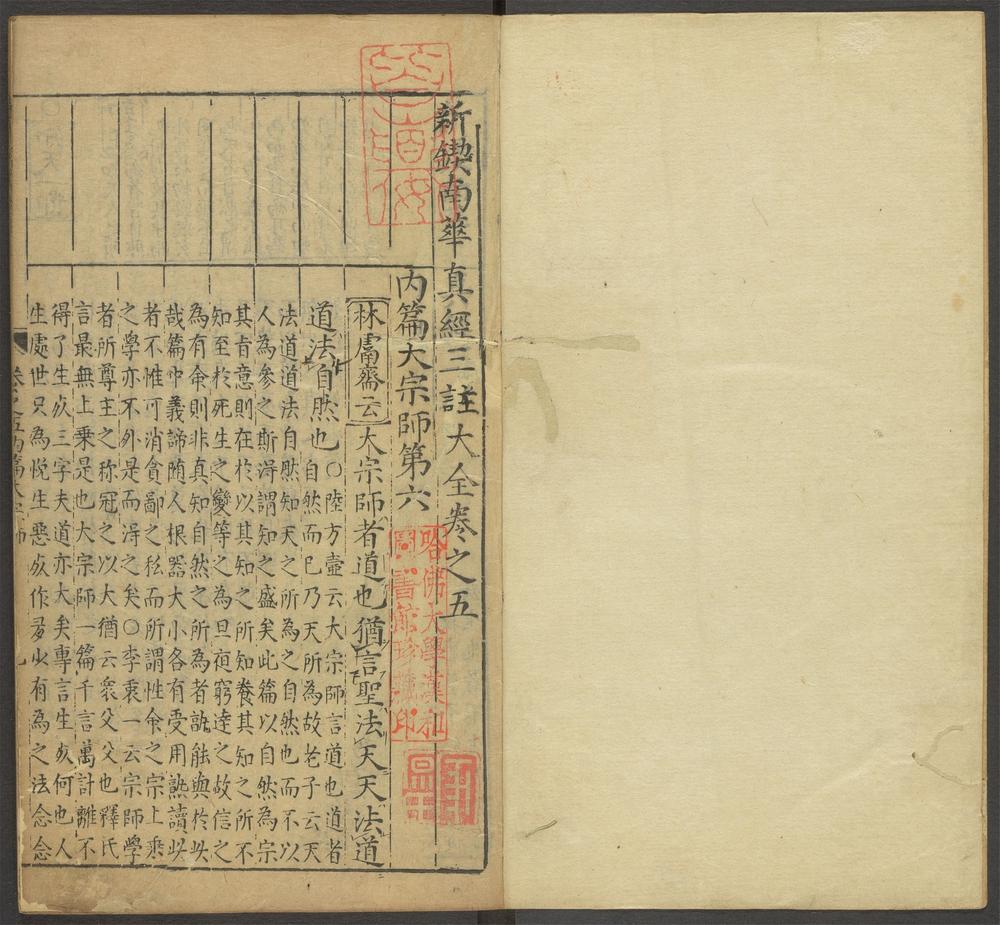 新鍥南華真經三註大全卷之五
內篇大宗師第六
林鬳齋云大宗師者道也猶言聖法天天法道
道法自然也○陸方壺云大宗師言道也道者
自然而已乃天所為故老子云天
法道道法自然知天之所為之自然也而不以
人為參之斯淂謂知之盛矣此篇以自然為宗
其肯意則在於以其知之所知養其知之所不
知至於死生之變等之為旦夜窮達之故信之
為有命則非真知自然之所為者詎能與於此
哉篇中義諦隨人根器大小各有受用熟讀此
者不惟可消貪鄙之私而所謂性命之宗上乘
之學亦不外是而淂之矣○李衷一云宗師學
者所尊主之称冠之以大猶云衆父父也釋氏
言最無上乗是也大宗師一篇千言萬計離不
得了生死三字夫道亦大矣專言生死何也人
生處世只為悅生惡死作多少有為之法念念
卷之五內篇大宗師
哈佛大學漢和
圖書館珍藏印